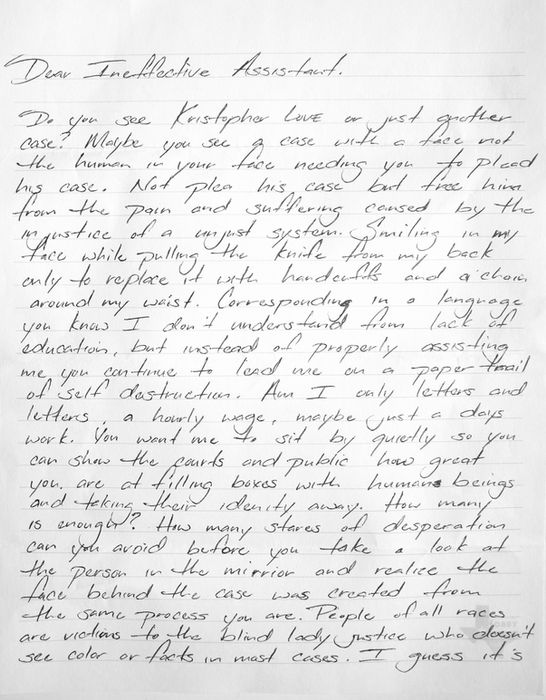 Dear Ineffective Assistant.
Do you see Kristopher Love or just another
case? Maybe you see a case with a face not
the human in your face needing you to plead
his case. Not plea his case but free him
from the pain and suffering caused by the
injustice of a unjust system. Smiling in my
face while pulling the knife from my back
only to replace it with handcuffs and a chain
around my waist. Corresponding in a language
you know I don't understand from lack of
education, but instead of properly assisting
me you continue to lead me on a paper trail
of self destruction. Am I only letters and
letters, a hourly wage, maybe just a days
work. You want me to sit by quietly so you
can show the courts and public how great
you are at filling boxes with humans beings
and taking their idenity away. How many
is enough? How many stares of desperation
can you avoid before you take a look at
the person in the mirrior and realize the
face behind the case was created from
the same process you are. People of all races
are victims to the blind lady justice who doesn't
see color or facts in most cases. I guess it's